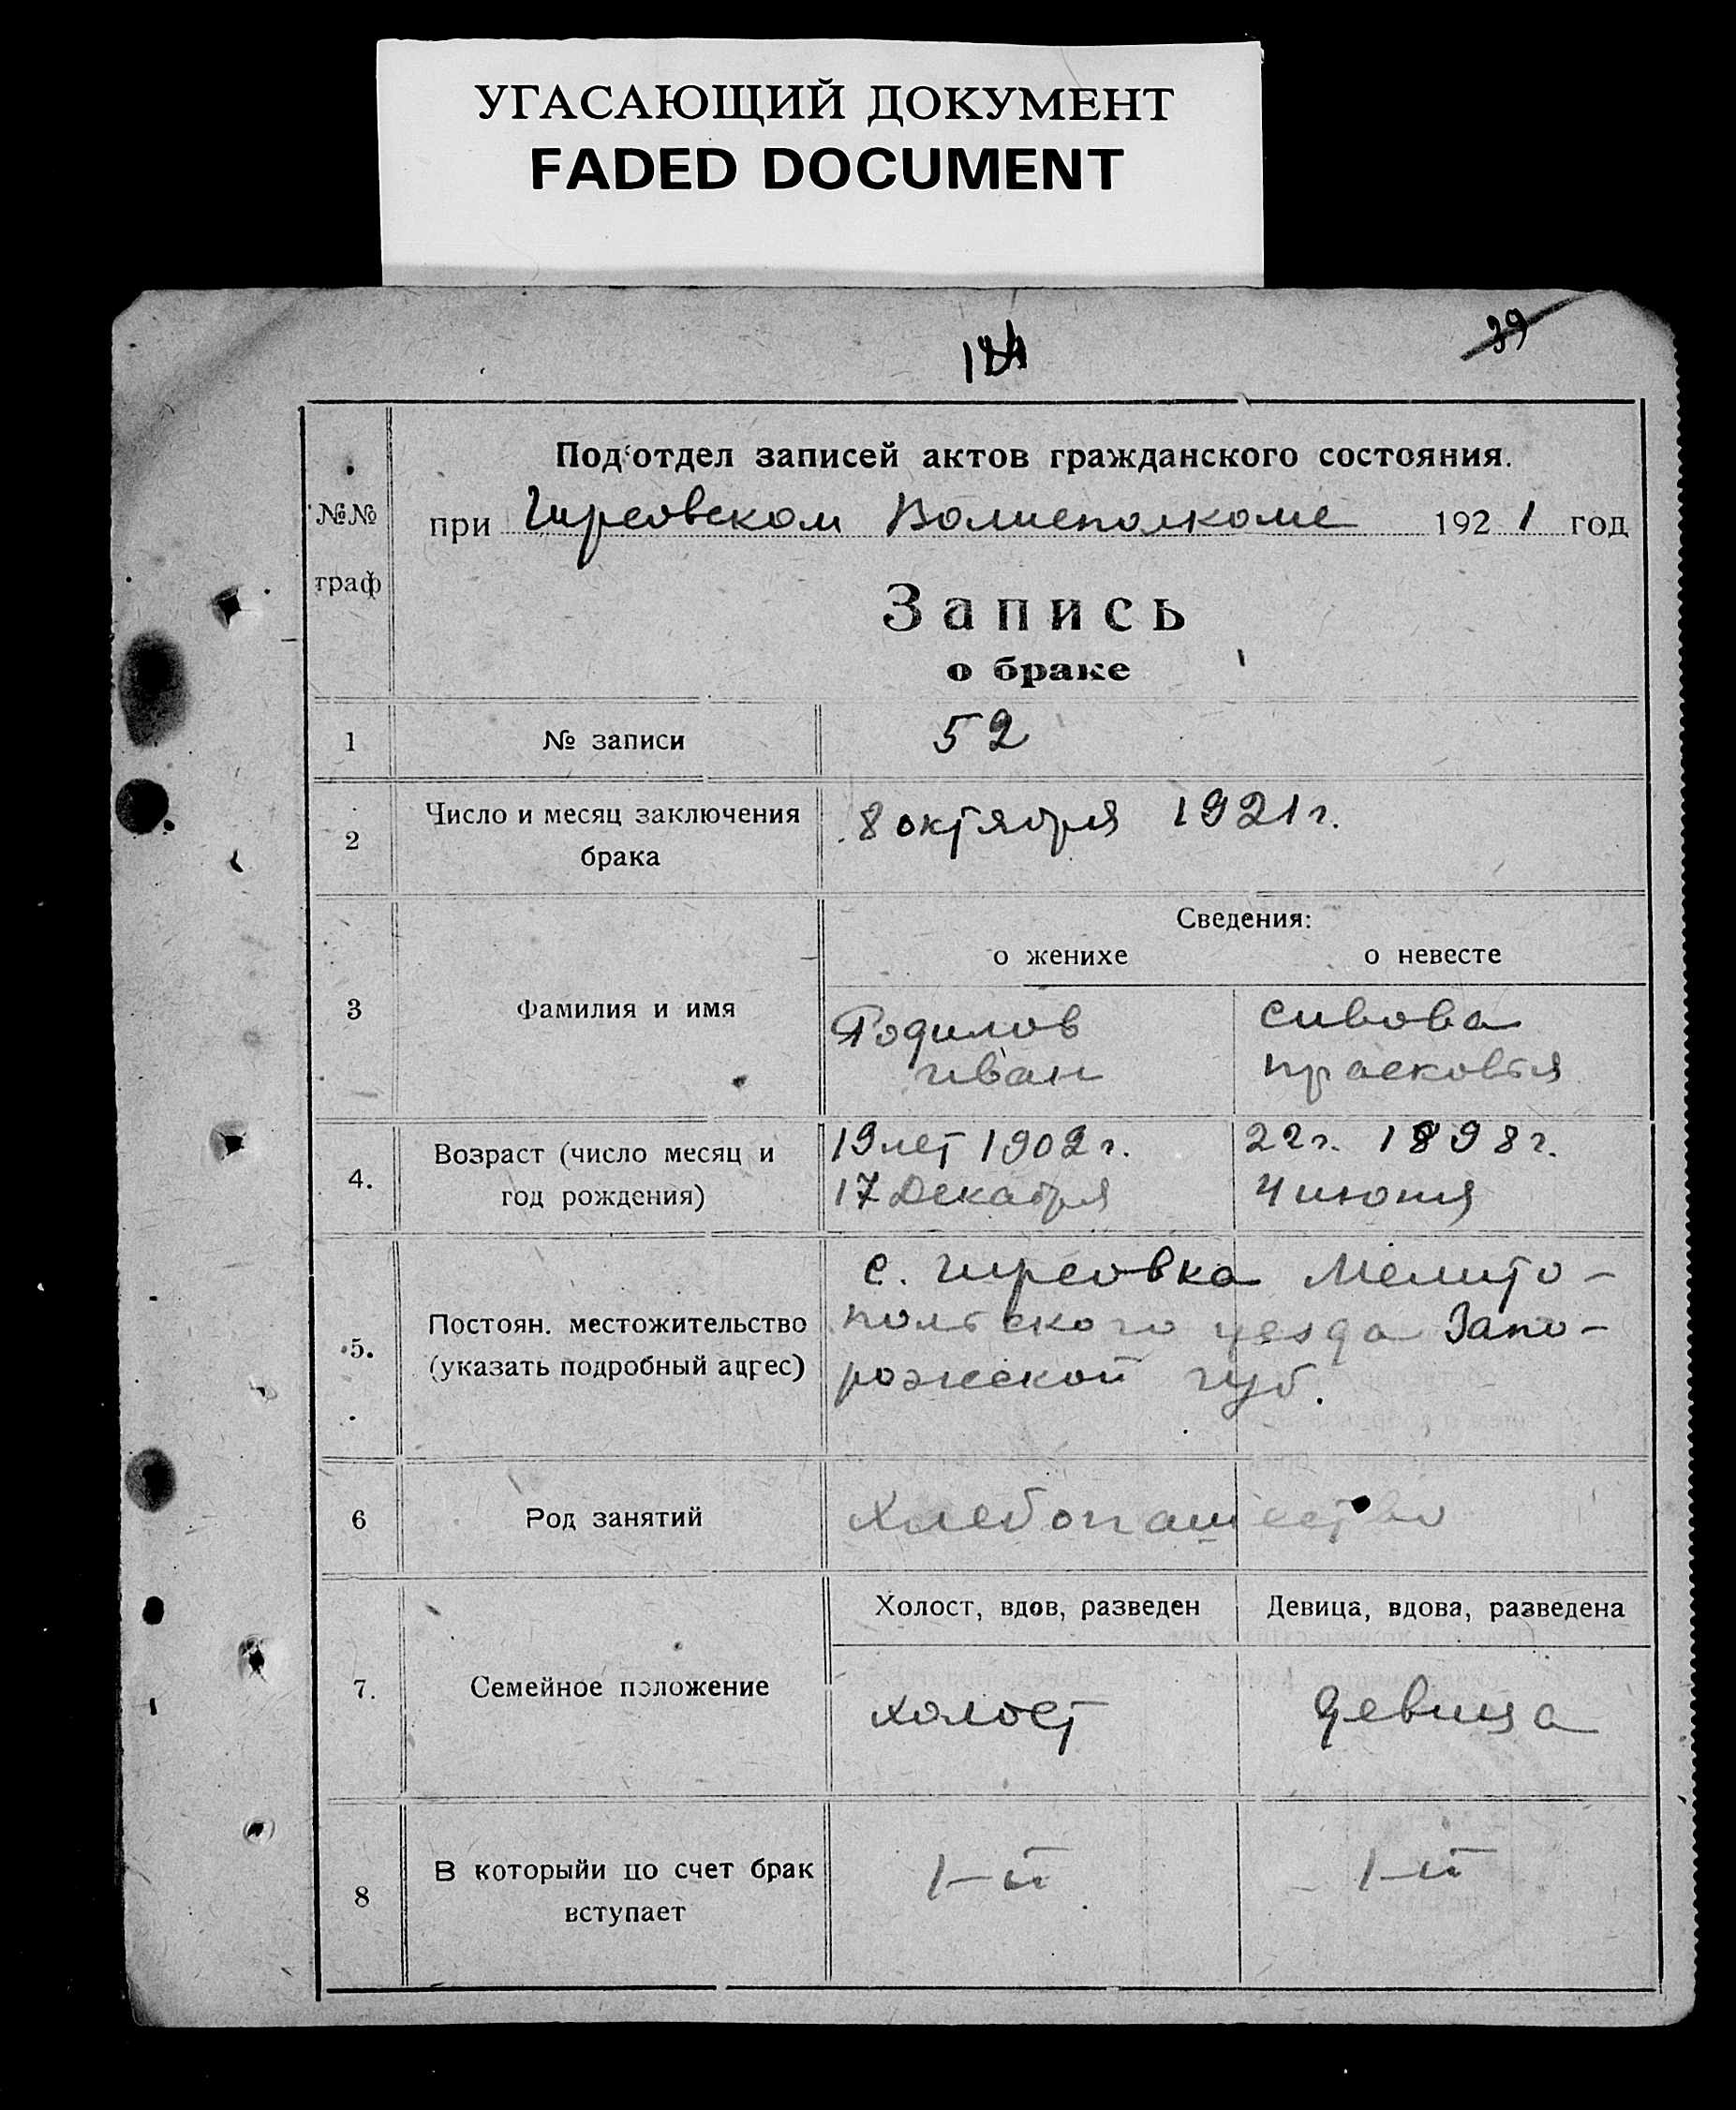 УГАСАЮЩИЙ ДОКУМЕНТ
FADED DOCUMENT
39
№№
граф
Подотдел записей актов гражданского состояния.
при Гиреовском Волисполкоме 1921 год
Запись
о браке
1 № записи 52
2 Число и месяц заключения
брака
8 октября 1921 г.
Сведения:
о женихе о невесте
3 Фамилия и имя
Родилов Сивова
Иван Прасковья
4. Возраст (число месяц и
год рождения)
19 лет 1902 г. 22 г. 1898 г.
17 Декабря 4 июня
5. Постоян. местожительство
(указать подробный адрес)
с. Гиреовка Мелито-
польского уезда Запо-
рожской губ.
6 Род занятий Хлебопашество
Холост, вдов, разведен Девица, вдова, разведена
7. Семейное положение холост девица
8 В которыйи по счет брак
вступает
1-й 1-й